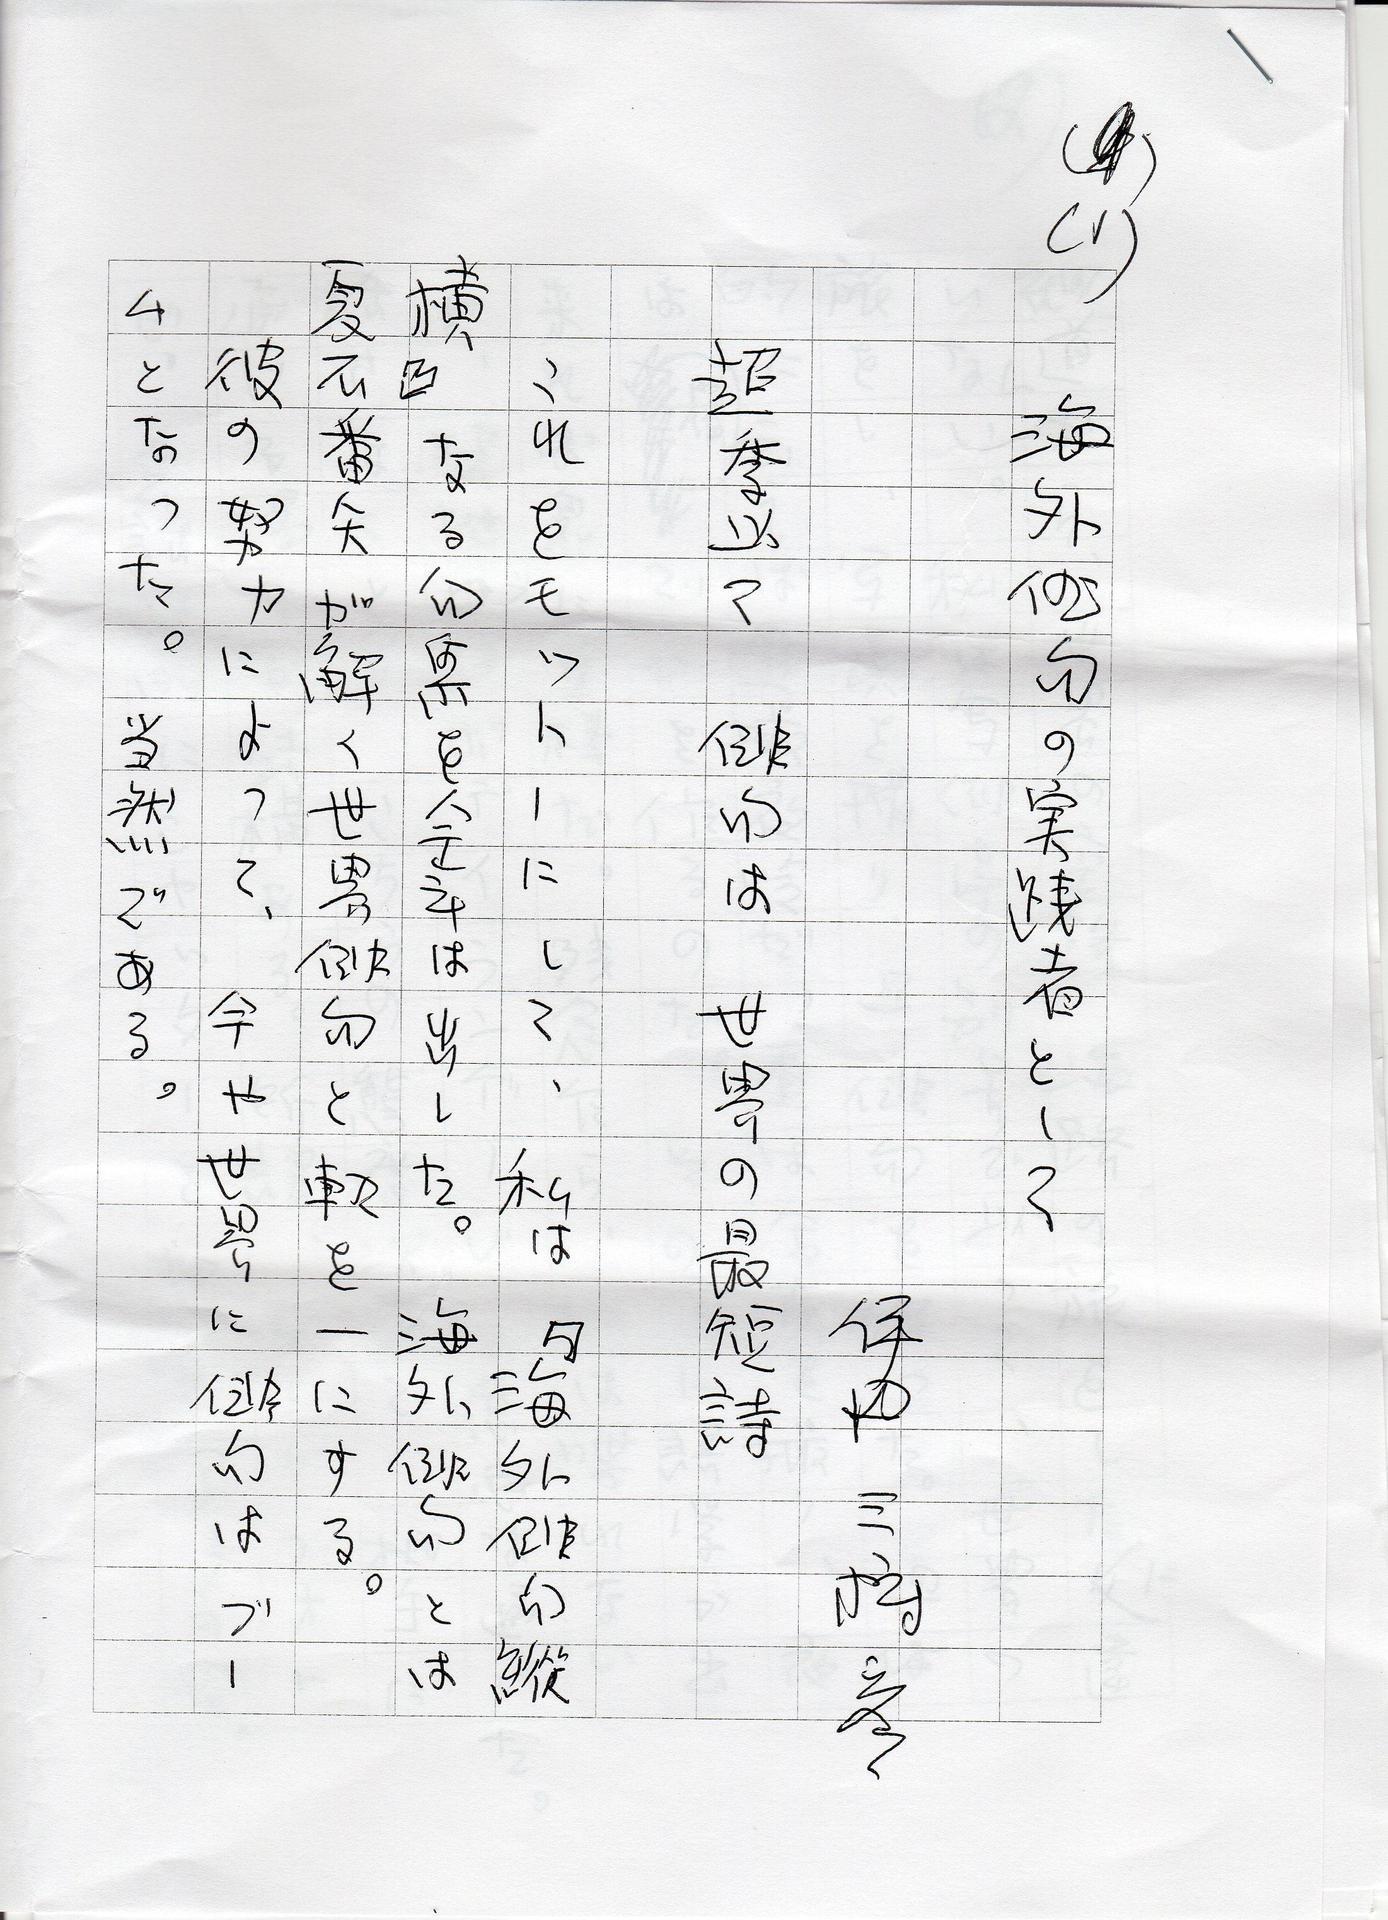 (1)
海外俳句の実践者として
伊丹 三樹彦
超季以て 俳句は 世界の最短詩
これをモットーにして、私は『海外俳句縦
横』なる句集を企画は出した。海外俳句とは
夏石番矢が解く世界俳句と軌を一にする。
彼の努力によって、今や世界に俳句はブー
ムとなった。当然である。